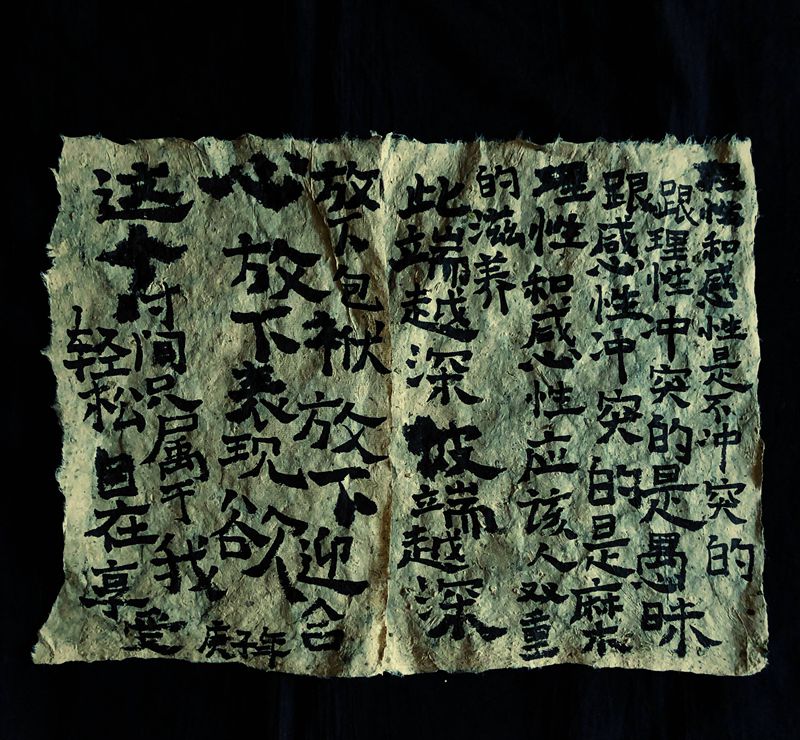 理性和感性是不冲突的
跟理性冲突的是愚昧
跟感性冲突的是麻木
理性和感性应该人双重
的滋养
此端越深彼端越深
放下包袱放下迎合
心放下表现欲
这个时间只属于我
轻松自在享受
庚子年